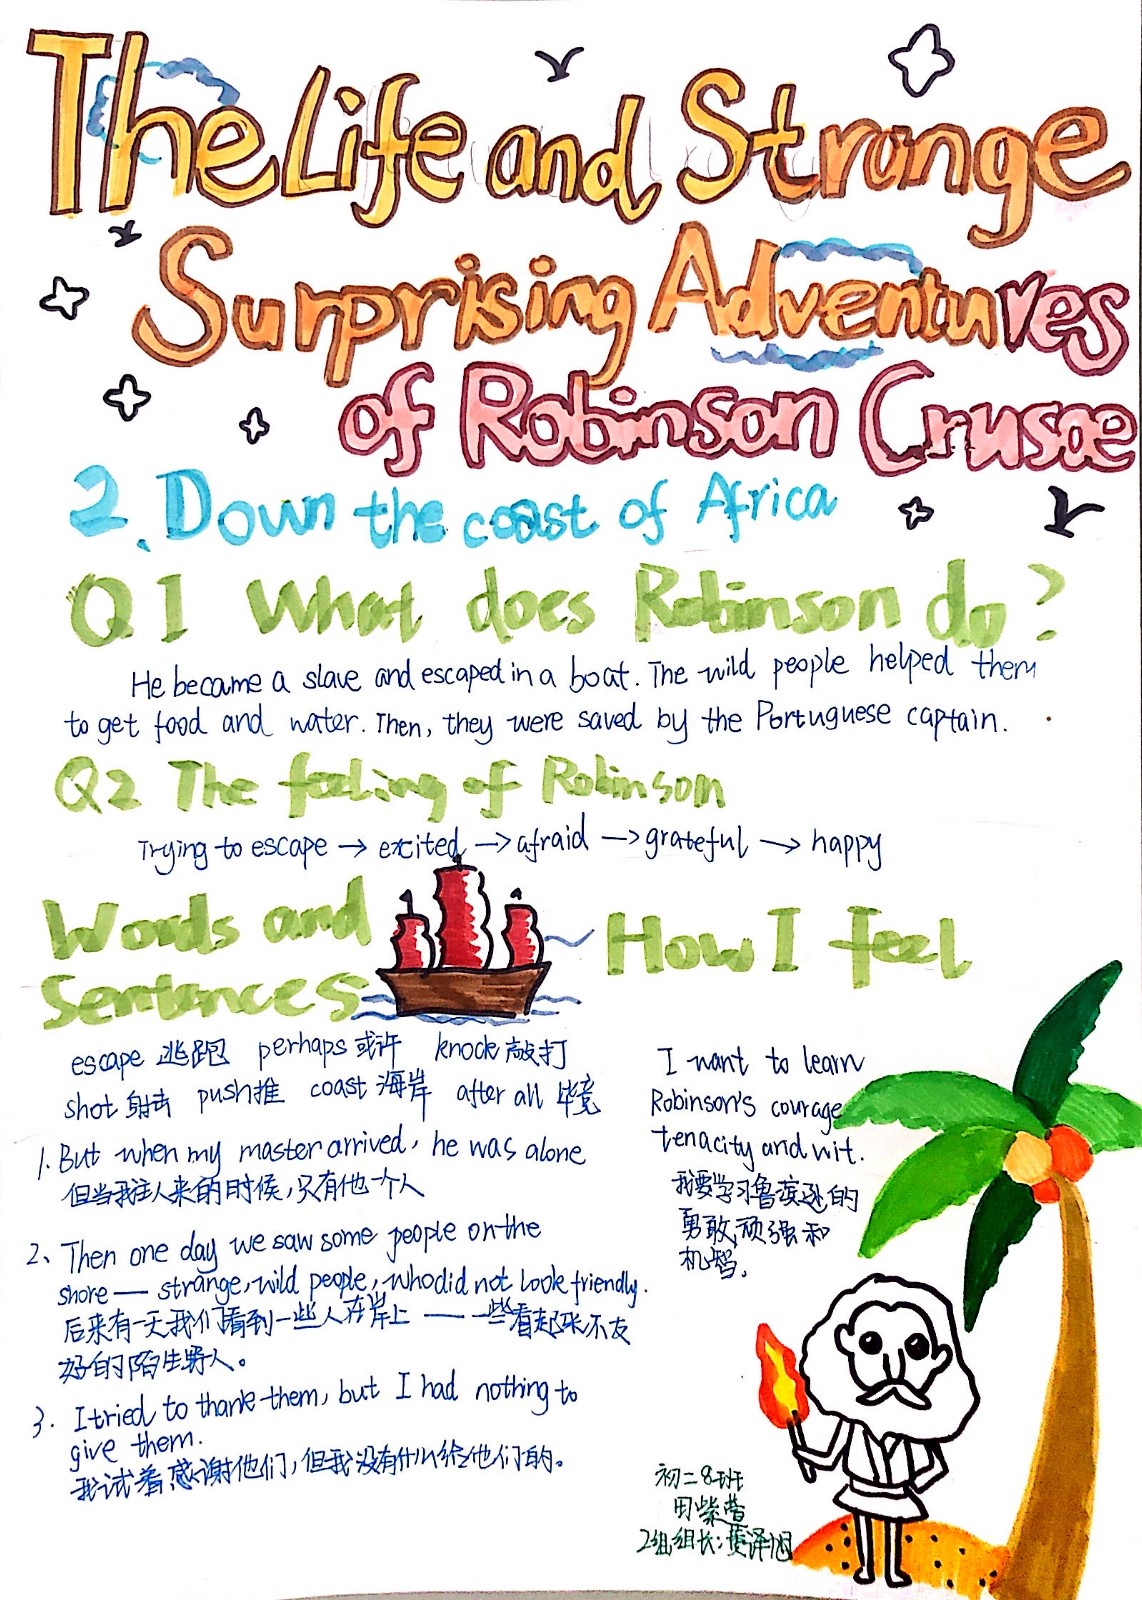 The Life and Strange
Surprising Adventures
of Robinson Crusoe
2. Down the coast of Africa
Q1 What does Robinson do?
He became a slave and escaped in a boat. The wild people helped them
to get food and water. Then, they were saved by the Portuguese captain.
Q2 The feeling of Robinson
Trying to escape → excited → afraid → grateful → happy
Words and
Sentances
escape 逃跑 perhaps 或许 knock 敲打
shot 射击 push推 coast 海岸 after all 毕竟
1. But when my master arrived, he was alone
但当我主人来的时候,只有他一个人
2、Then one day we saw some people on the
shore — strange, wild people, who did not look friendly.
后来有一天我们看到一些人在岸上 —— 一些看起来不友
好的陌生野人。
3. I tried to thank them, but I had nothing to
give them.
我试着感谢他们,但我没有什么给他们的。
How I feel
I want to learn
Robinson's courage
tenacity and wit.
我要学习鲁滨逊的
勇敢,顽强和
机智.
初二8班
田紫萱
2组组长: